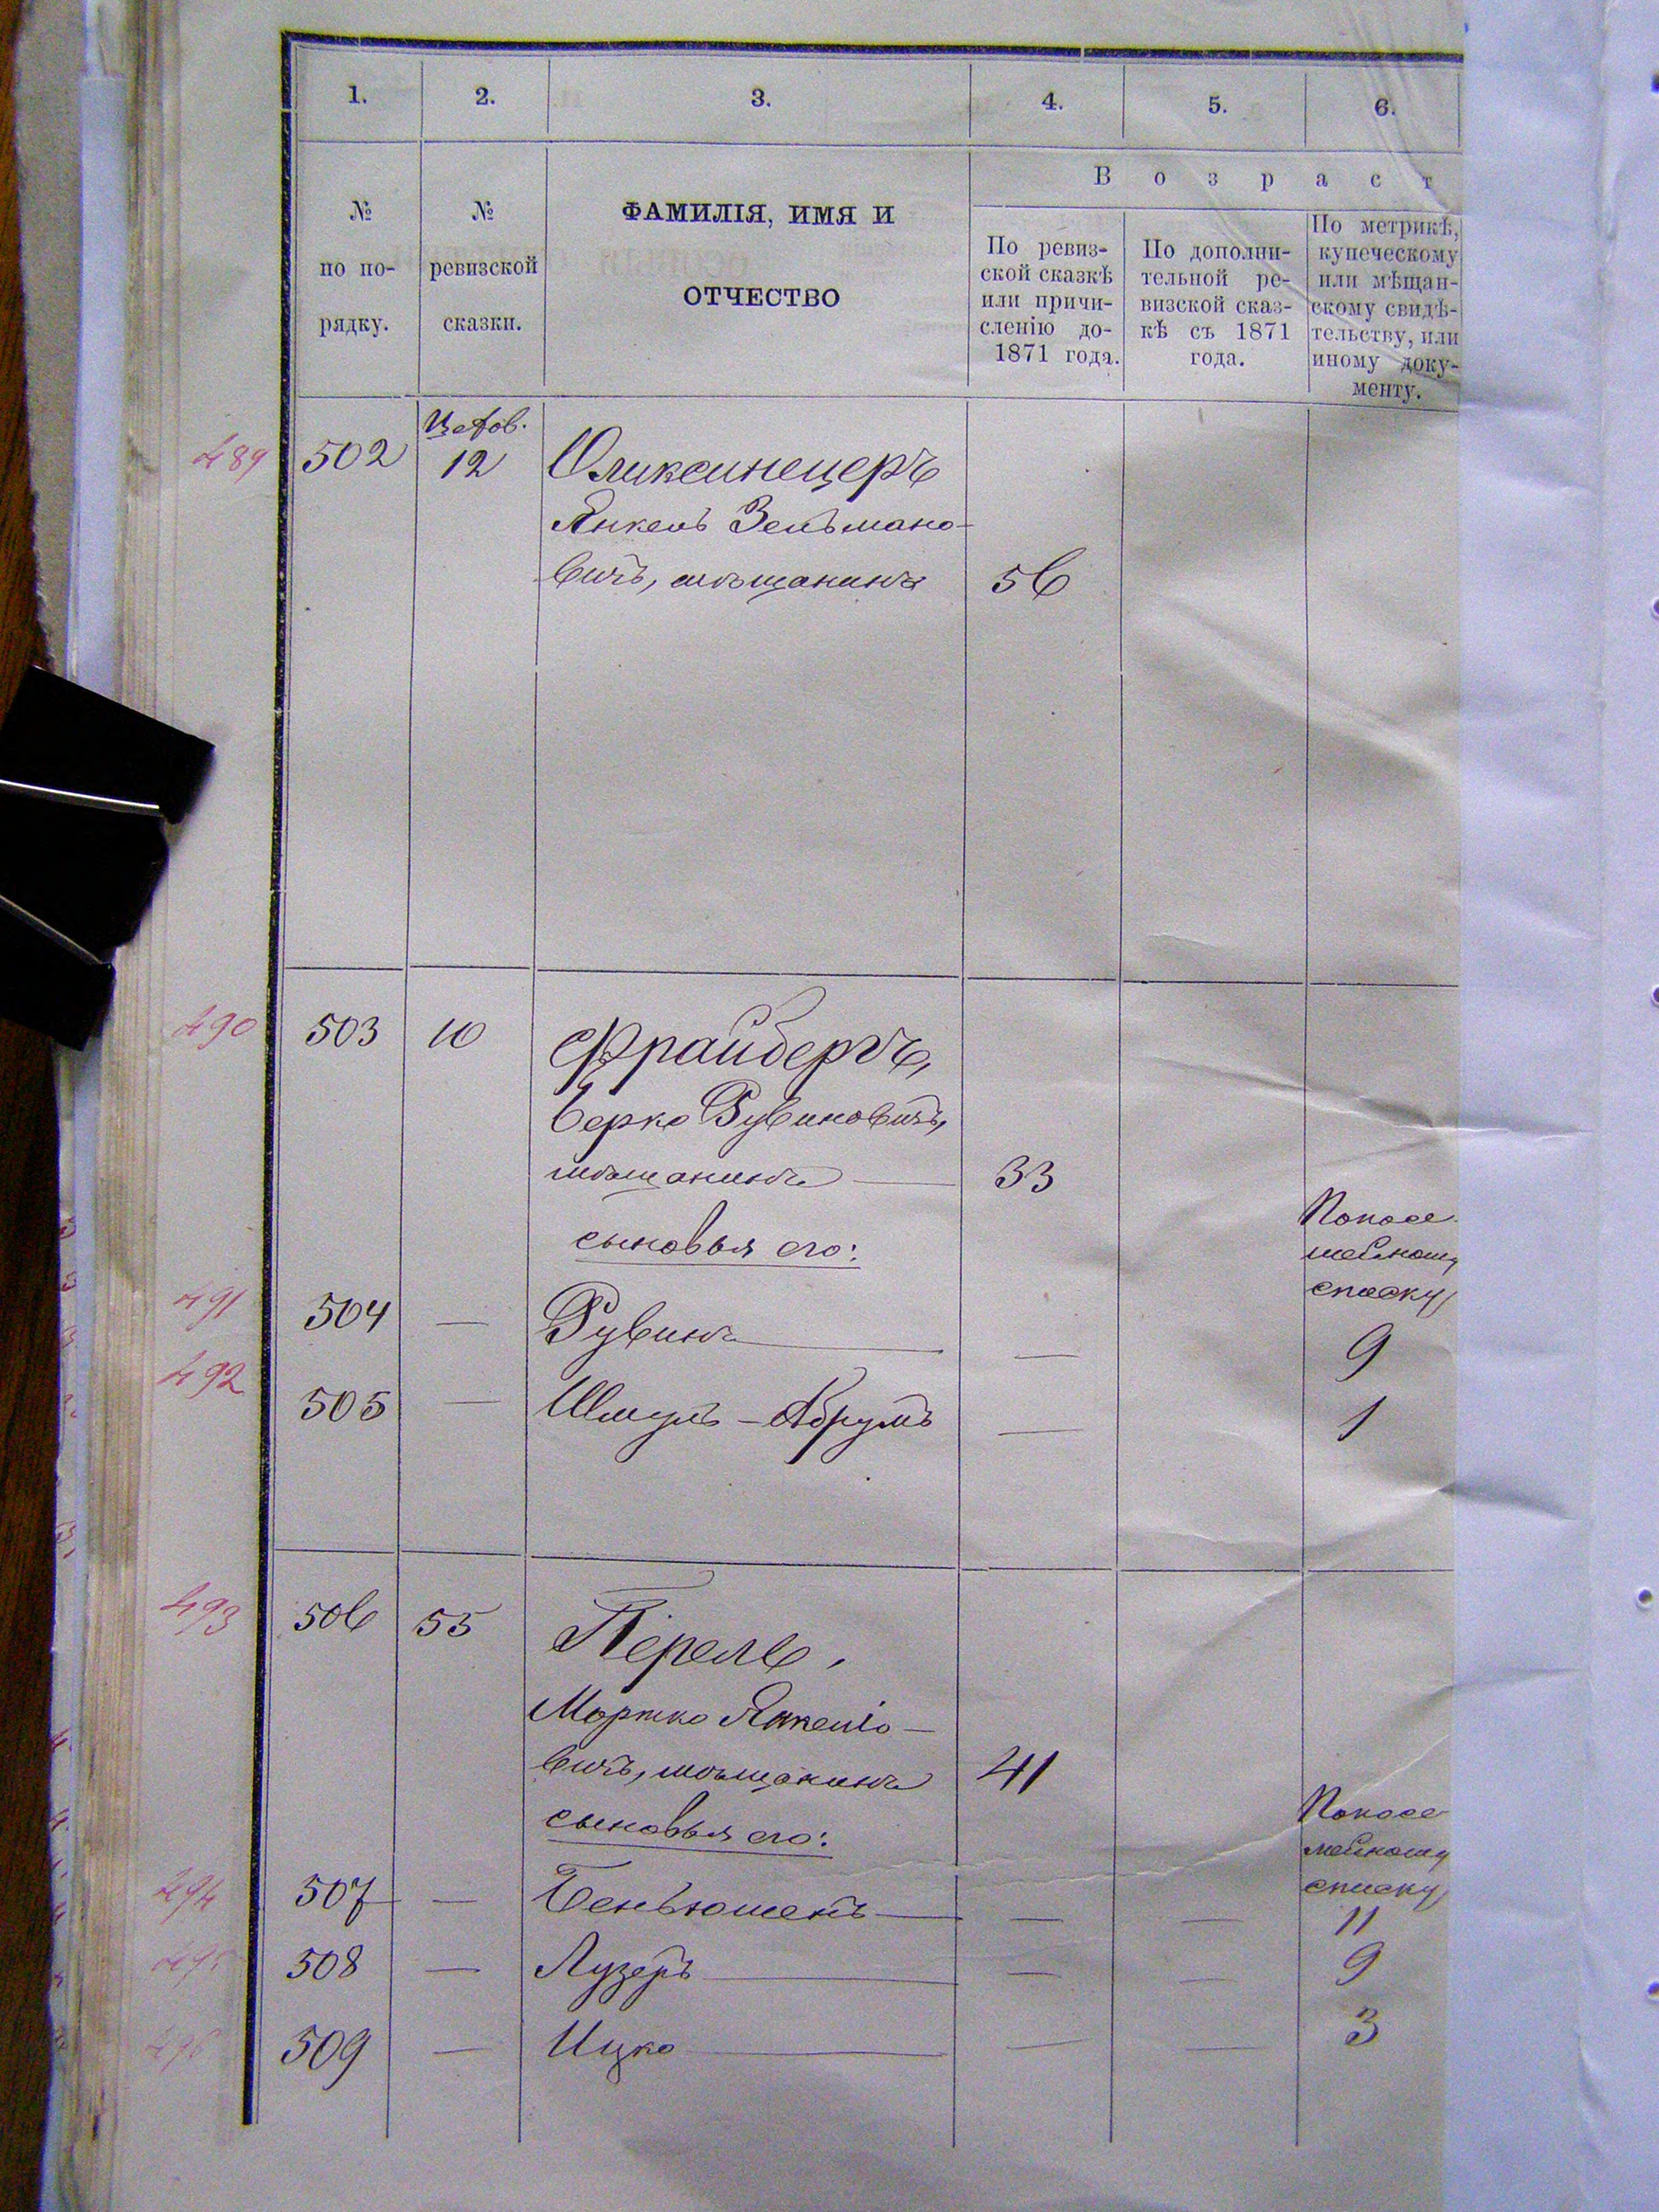 1. 2. 3. 4. 5. 6.
№
по по-
рядку.
№
ревизской
сказки.
ФАМИЛІЯ, ИМЯ И
ОТЧЕСТВО
Возраст
По ревиз-
ской сказкѣ
или причи-
сленію до-
1871 года.
По дополни-
тельной ре-
визской сказ-
кѣ съ 1871
года.
По метрикѣ,
купеческому
или мѣщан-
скому свидѣ-
тельству, или
иному доку-
менту.
489 502 12 Оликсинецеръ
Янкель Зельмано-
вичъ, мѣщанинъ 56
490 503 10 Фрайбергъ,
Берко Рувиновичъ,
мѣщанинъ — 33
сыновья его:
По посе-
мейному
списку
491 504 — Рувинъ — — 9
492 505 — Шмуль-Абрумъ — 1
493 506 55 Перель,
Мортко Янкеліо-
вичъ, мѣщанинъ 41
сыновья его:
По посе-
мейному
списку
494 507 — Беньюменъ — — — 11
495 508 — Лузеръ — — — 9
496 509 — Ицко — — — 3